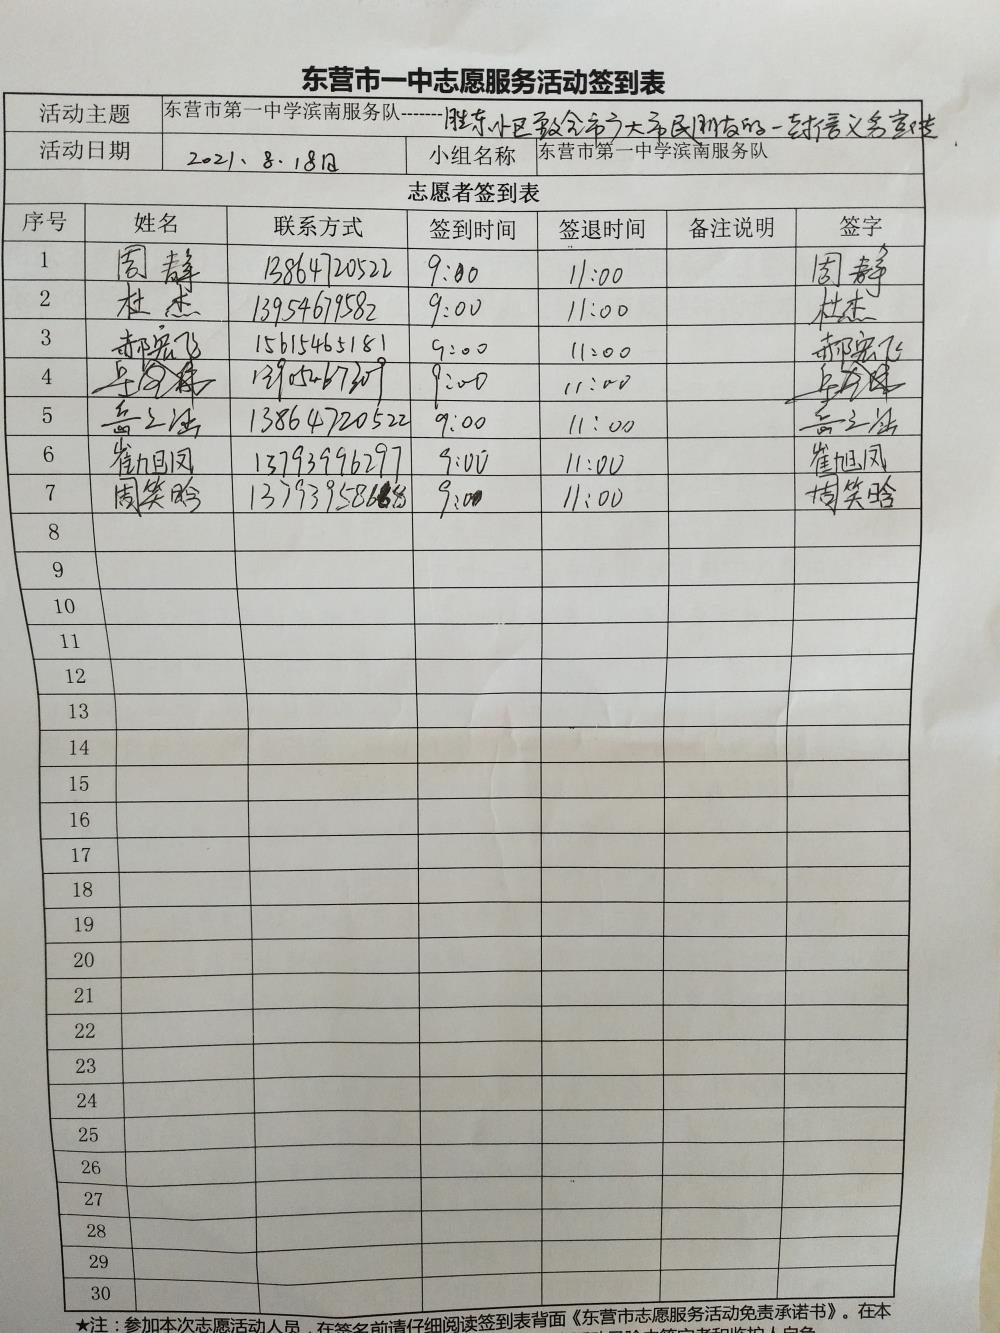 东营市一中志愿服务活动签到表
活动主题 东营市第一中学滨南服务队-------胜东小区致全市广大市民朋友的一封信义务宣传
活动日期 2021.8.18日 小组名称 东营市第一中学滨南服务队
志愿者签到表
序号 姓名 联系方式 签到时间 签退时间 备注说明 签字
1 周静 13864720522 9:00 11:00 周静
2 杜杰 13954679582 9:00 11:00 杜杰
3 郝宏飞 15615465181 9:00 11:00 郝宏飞
4 13905467309 9:00 11:00
5 13864720522 9:00 11:00
6 崔旭凤 13793996297 9:00 11:00 崔旭凤
7 周笑晗 9:00 11:00 周笑晗
8
9
10
11
12
13
14
15
16
17
18
19
20
21
22
23
24
25
26
27
28
29
30
★注：参加本次志愿活动人员，在签名前请仔细阅读签到表背面《东营市志愿服务活动免责承诺书》。在本